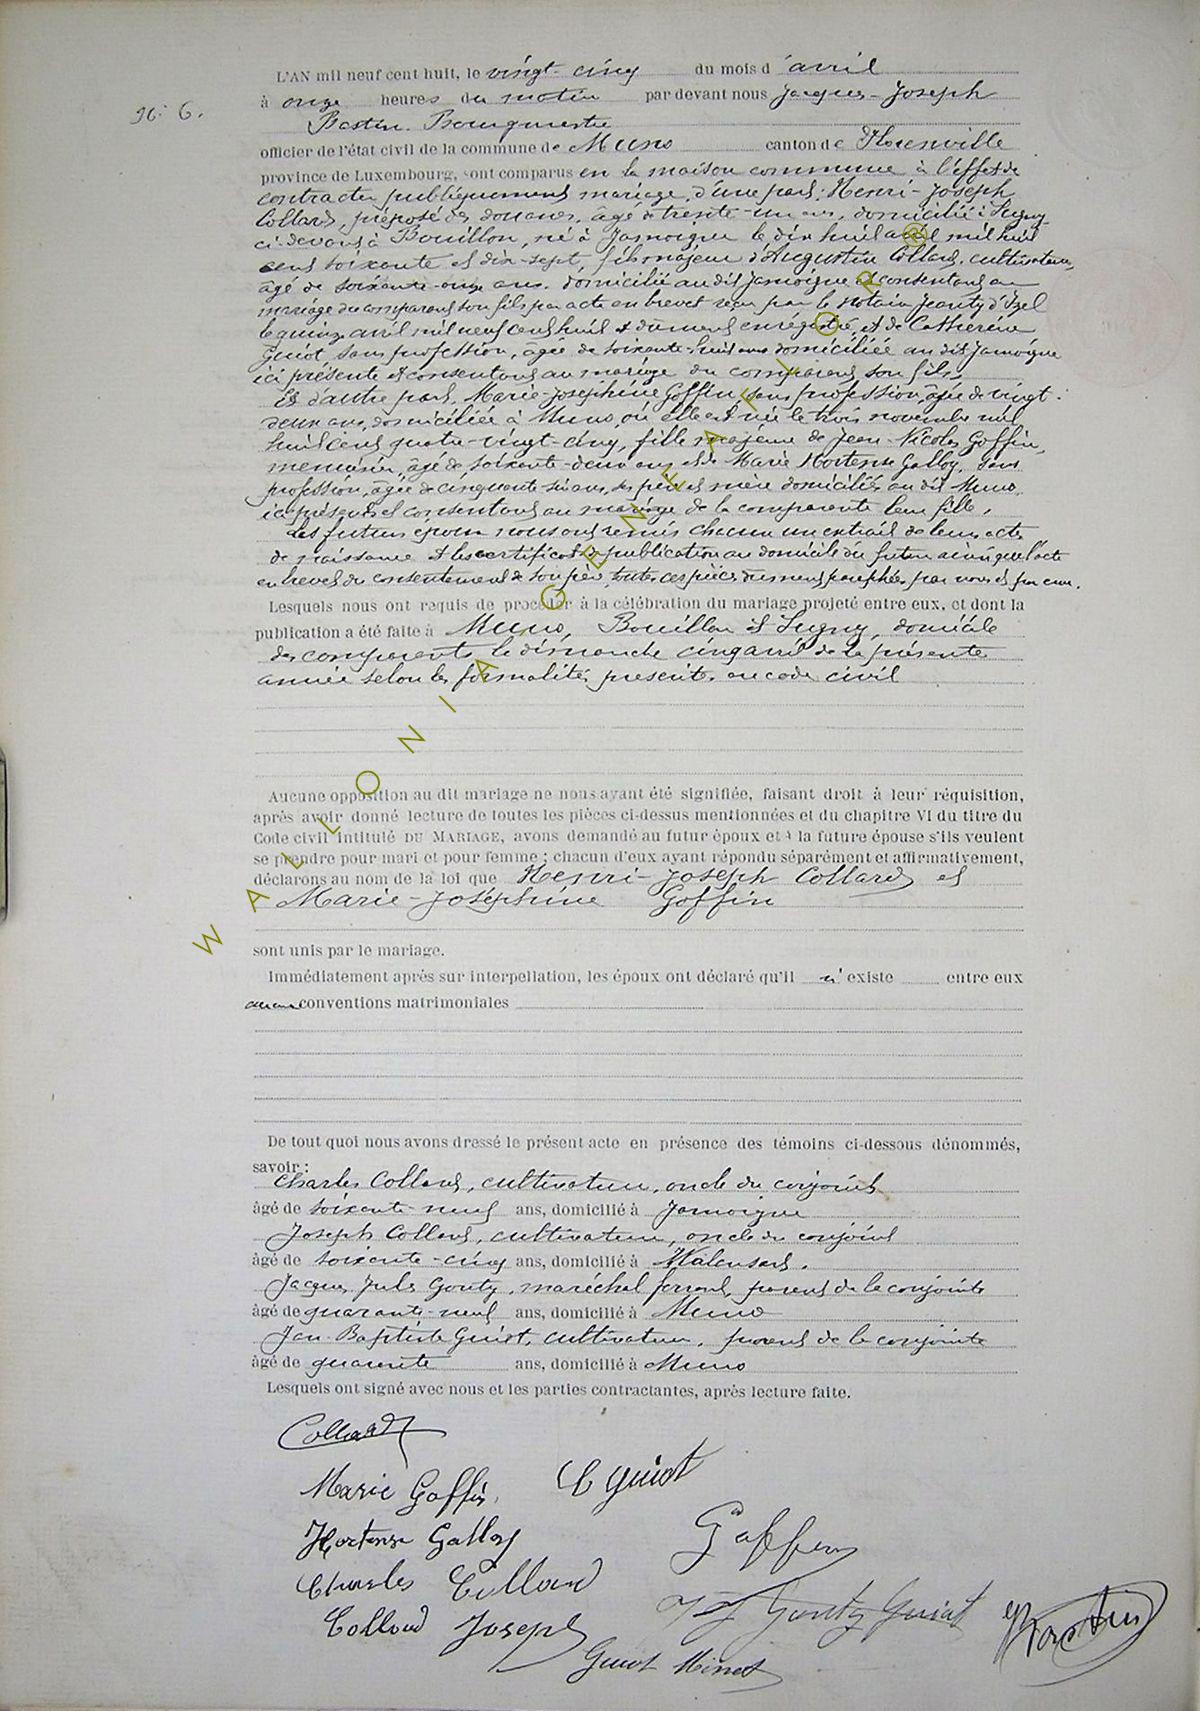 N° 6.
L'AN mil neuf cent huit, le vingt-cinq du mois d'avril
à onze heures du matin par devant nous Jacques-Joseph
Bastin Bourgmestre
officier de l'état civil de la commune de Muno canton de Florenville
province de Luxembourg, sont comparus en la maison commune à l'effet de
contracter publiquement mariage, d'une part: Henri-Joseph
Collard, préposé des douanes, âgé de trente-un ans, domicilié à Sugny
ci-devant à Bouillon, né à Jamoigne le dix huit avril mil huit
cent soixante et dix-sept, fils majeur d'Augustin Collard, cultivateur,
âgé de soixante-onze ans, domicilié au dit Jamoigne et consentant au
mariage du comparant son fils par acte en brevet reçu par le notaire Jeanty d'Izel
le quinze avril mil neuf cent huit et dûment enrégistré, et de Catherine
Guiot, sans profession, âgée de soixante-huit ans domiciliée au dit Jamoigne
ici présente et consentant au mariage du comparant son fils,
Et d'autre part, Marie-Joséphine Goffin, sans profession, âgée de vingt-
deux ans, domiciliée à Muno, où elle est née le trois novembre mil
huit cent quatre-vingt-cinq, fille majeure de Jean-Nicolas Goffin,
menuisier, âgé de soixante-deux ans et de Marie Hortense Galloy, sans
profession, âgée de cinquante-six ans, ses père et mère domiciliés au dit Muno,
ici présents et consentant au mariage de la comparante leur fille,
Les futurs époux nous ont remis chacun un extrait de leurs actes
de naissance et les certificats de publication au domicile du futur ainsi que l'acte
en brevet du consentement de son père, toutes ces pièces dûment paraphées par nous et par eux.
Lesquels nous ont requis de procéder à la célébration du mariage projeté entre eux, et dont la
publication a été faite à Muno, Bouillon et Sugny, domicile
des comparants le dimanche cinq avril de la présente
année selon les formalités prescrites au code civil
Aucune opposition au dit mariage ne nous ayant été signifiée, faisant droit à leur réquisition,
après avoir donné lecture de toutes les pièces ci-dessus mentionnées et du chapitre VI du titre du
Code civil intitulé DU MARIAGE, avons demandé au futur époux et à la future épouse s'ils veulent
se prendre pour mari et pour femme ; chacun d'eux ayant répondu séparément et affirmativement,
déclarons au nom de la loi que Henri-Joseph Collard et
Marie-Joséphine Goffin
sont unis par le mariage.
Immédiatement après sur interpellation, les époux ont déclaré qu'il n'existe entre eux
aucune conventions matrimoniales
De tout quoi nous avons dressé le présent acte en présence des témoins ci-dessous dénommés,
savoir :
Charles Collard, cultivateur, oncle du conjoint
âgé de soixante-neuf ans, domicilié à Jamoigne
Joseph Collard, cultivateur, oncle du conjoint
âgé de soixante-cinq ans, domicilié à Walansart.
Jacques Jules Gouty, maréchal ferrant, parent de la conjointe
âgé de quarante-neuf ans, domicilié à Muno
Jean-Baptiste Guiot, cultivateur, parent de la conjointe
âgé de quarante ans, domicilié à Muno
Lesquels ont signé avec nous et les parties contractantes, après lecture faite.
Collard
Marie Goffin C Guiot
Hortense Galloy Goffin
Charles Collard
Collard Joseph Gouty Guiot Bastin
Guiot
WALLONIA GENEAFLOR ®